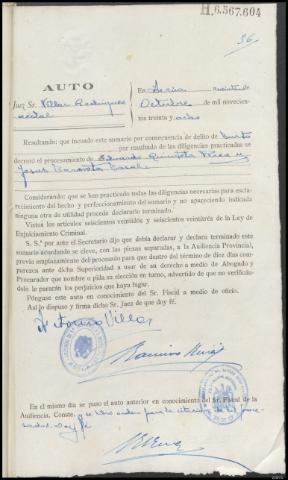 H.6.567.604
36
AUTO
Juez Sr. Villar Rodríguez
En Lucía veinte de
Octubre de mil novecien-
tos treinta y ocho
Resultando: que incoado este sumario por consecuencia de delito de hurto
por resultado de las diligencias practicadas se
decretó el procesamiento de Eduardo Quinteta y
Jesus
Considerando: que se han practicado todas las diligencias necesarias para es-
clarecimiento del hecho y perfeccionamiento del sumario y no apareciendo indicada
ninguna otra de utilidad procede declararlo terminado.
Vistos los artículos seiscientos veintidós y seiscientos veintitrés de la Ley de
Enjuiciamiento Criminal.
S. S.ª por ante el Secretario dijo que debía declarar y declara terminado este
sumario acordando se eleve, con las piezas separadas, a la Audiencia Provincial,
previo emplazamiento del procesado para que dentro del término de diez días com-
parezca ante dicha Superioridad a usar de su derecho a medio de Abogado y
Procurador que nombre o pida su elección en turno, advertido de que no verificán-
dole le pararán los perjuicios que haya lugar.
Póngase este auto en conocimiento del Sr. Fiscal a medio de oficio.
Así lo dispuso y firma dicho Sr. Juez de que doy fé.
Villar
Ramiro
En el mismo día se puso el auto anterior en conocimiento del Sr. Fiscal de la
Audiencia. Conste. y se libro orden para la citación de los proce-
sados. Doy fé